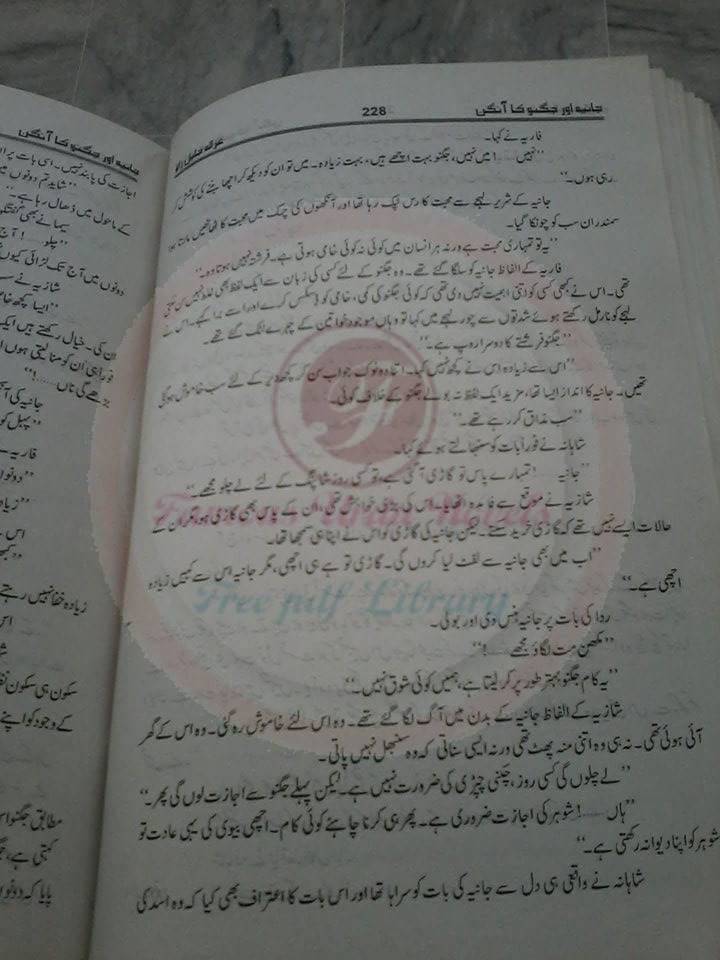 جانیہ اور جگنو کا آنگن
228
فاریہ نے کہا۔
’’نہیں ......! میں نہیں، جگنو بہت اچھے ہیں، بہت زیادہ۔ میں تو ان کو دیکھ کر اچھا بننے کی کوشش کر
رہی ہوں۔‘‘
جانیہ کے شریر لہجے سے محبت کا رس ٹپک رہا تھا اور آنکھوں کی چمک میں محبت کا ٹھاٹھیں مارتا ہوا
سمندر ان سب کو چونکا گیا۔
’’یہ تو تمہاری محبت ہے ورنہ ہر انسان میں کوئی نہ کوئی خامی ہوتی ہے۔ فرشتہ نہیں ہوتا وہ۔‘‘
فاریہ کے الفاظ جانیہ کو سلگا گئے تھے۔ وہ جگنو کے لئے کسی کی زبان سے ایک لفظ بھی غلط نہیں سن سکتی
تھی۔ اس نے کبھی کسی کو اتنی اہمیت نہیں دی تھی کہ کوئی جگنو کی کمی، خامی کو ڈسکس کرے اور اسے برا کہے۔ اس نے
لہجے کو نارمل رکھتے ہوئے شدتوں سے چور لہجے میں کہا تو وہاں موجود خواتین کے چہرے لٹک گئے تھے۔
’’جگنو فرشتے کا دوسرا روپ ہے۔‘‘
’’اس سے زیادہ اس نے کچھ نہیں کہا۔ اتنا دو ٹوک جواب سن کر کچھ دیر کے لئے سب خاموش ہو گئی
تھیں۔ جانیہ کا انداز ایسا تھا، مزید ایک لفظ نہ بولے جگنو کے خلاف کوئی۔
’’سب مذاق کر رہے تھے۔‘‘
شاہانہ نے فوراً بات کو سنبھالتے ہوئے کہا۔
’’جانیہ ......! تمہارے پاس تو گاڑی آ گئی ہے، تو کسی روز شاپنگ کے لئے لے چلو مجھے۔‘‘
شازیہ نے موقع سے فائدہ اٹھایا۔ اس کی بڑی خواہش تھی، ان کے پاس بھی گاڑی ہو، مگر ان کے
حالات ایسے نہیں تھے کہ گاڑی خرید سکتے۔ لیکن جانیہ کی گاڑی کو اس نے اپنا ہی سمجھا تھا۔
’’اب میں بھی جانیہ سے لفٹ لیا کروں گی۔ گاڑی تو ہے ہی اچھی، مگر جانیہ اس سے کہیں زیادہ
اچھی ہے۔‘‘
ردا کی بات پر جانیہ ہنس دی اور بولی۔
’’مکھن مت لگاؤ مجھے ......!‘‘
’’یہ کام جگنو بہتر طور پر کر لیتا ہے، ہمیں کوئی شوق نہیں۔‘‘
شازیہ کے الفاظ جانیہ کے بدن میں آگ لگا گئے تھے۔ وہ اس لئے خاموش رہ گئی۔ وہ اس کے گھر
آئی ہوئی تھی۔ نہ ہی وہ اتنی منہ پھٹ تھی ورنہ ایسی سناتی کہ وہ سنبھل نہیں پاتی۔
’’لے چلوں گی کسی روز، چکنی چپڑی کی ضرورت نہیں ہے۔ لیکن پہلے جگنو سے اجازت لوں گی پھر۔‘‘
’’ہاں ......! شوہر کی اجازت ضروری ہے۔ پھر ہی کرنا چاہئے کوئی کام۔ اچھی بیوی کی یہی عادت تو
شوہر کو اپنا دیوانہ رکھتی ہے۔‘‘
شاہانہ نے واقعی ہی دل سے جانیہ کی بات کو سراہا تھا اور اس بات کا اعتراف بھی کیا کہ وہ اسد کی
Free pdf Library
جانیہ اور جگنو کا آنگن
اجازت کی پابند نہیں۔ اسی بات پر
’’شاید تم دونوں میں
کے ماحول میں ڈھال رہا ہے۔
سیما نے بھی
’’چلو ......! آج
دونوں میں آج تک لڑائی کیوں
شازیہ نے
’’ایسا کچھ
ان کی۔ خیال رکھتے ہیں
فوراً ہی ان کو منا لیتی ہوں
بڑھے گی ناں ......!‘‘
جانیہ کی
’’پہل کو
فاریہ
’’دونوں
’’زیاد
اس
زیادہ خفا نہیں رہتے
سکون ہی سکون
کے وجود کو اپنے
مطابق جگنو
کہتی ہے،
پایا کہ دونوں